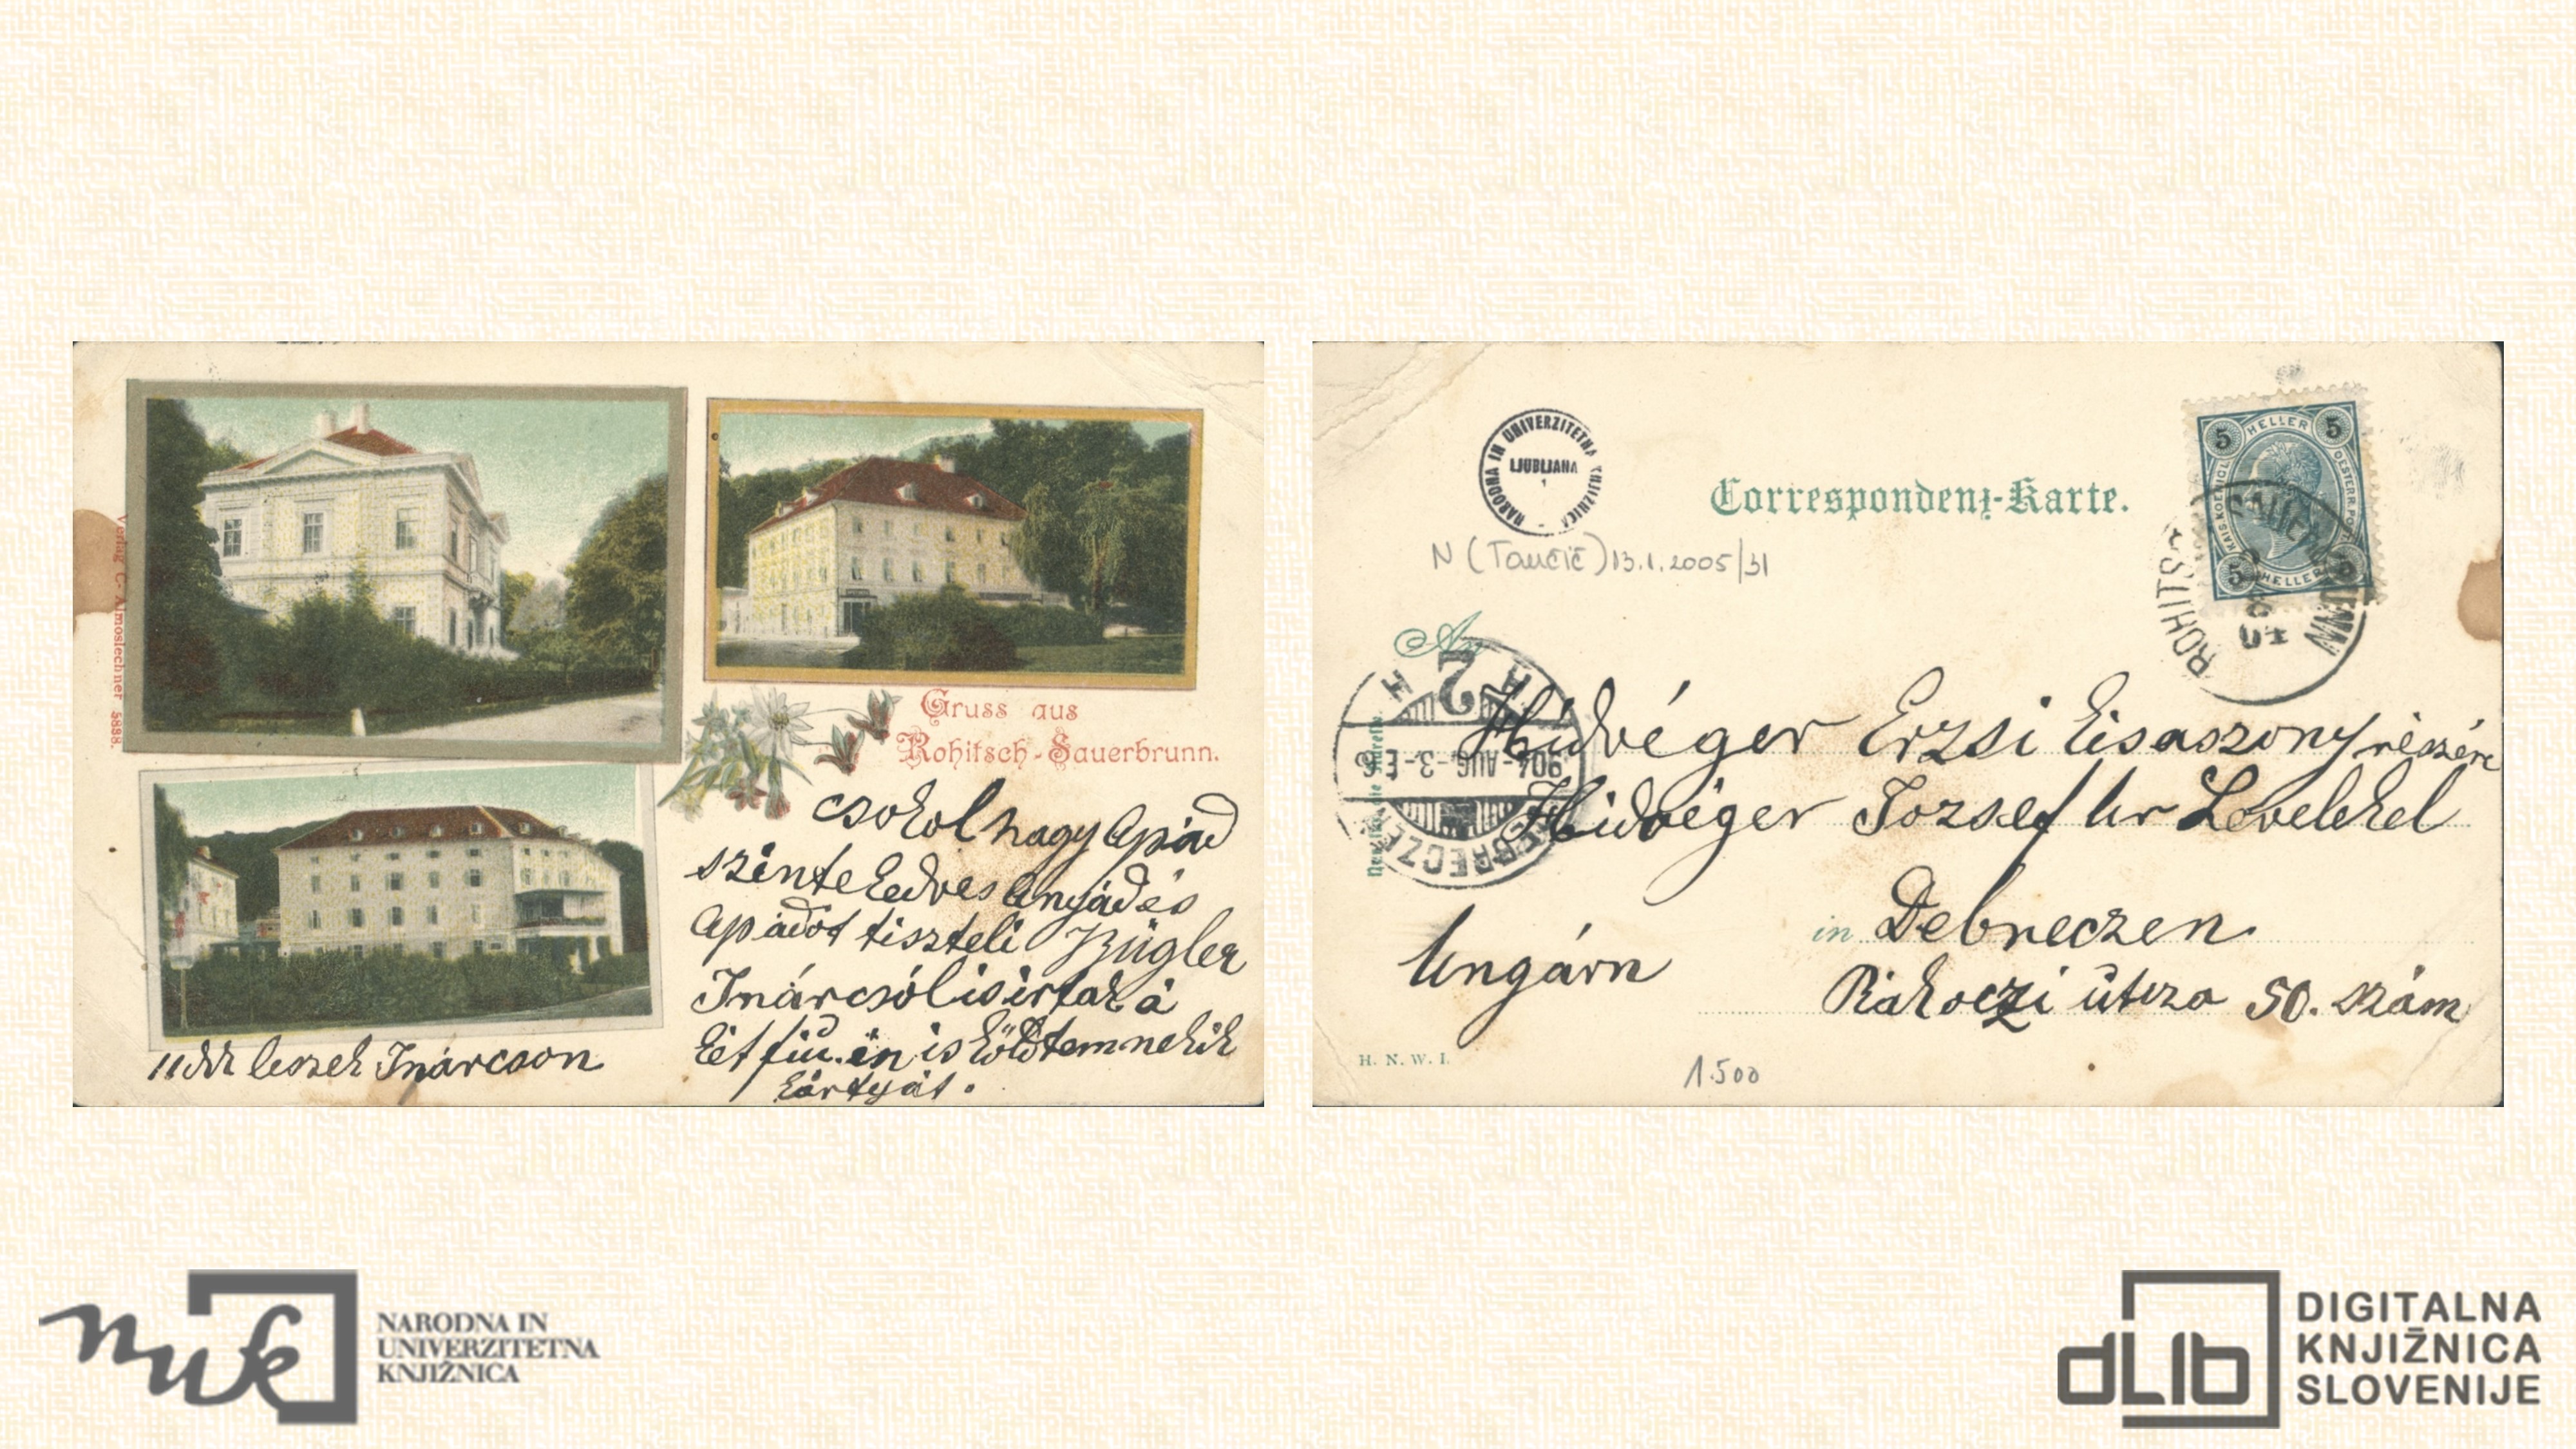 Verlag C. Almoslechner 5888.
Gruss aus
Rohitsch-Sauerbrunn.
csokol nagy Apád
szinte kedves Anyád és
Apádot tiszteli Zügler
Inárcsól is irtak á
két fiu. én is köldtem nekik
kártyát.
11dik leszek Inárcson
NARODNA IN UNIVERZITETNA KNJIŽNICA
LJUBLJANA
1
Correspondenz-Karte.
N (Taučič) 13.1.2005/31
5 HELLER 5
KAIS. KOENIGL. OESTERR. POST
5 HELLER 5
ROHITSCH SAUERBRUNN
An
904-AUG-3-E6
DEBRECZEN
Hidvéger Erzsi kisaszony részére
Hidvéger Jozsef Ur Levelekel
in Debreczen.
Ungárn
Rákoczi útcza 50. szám
H. N. W. I.
1.500
nuk
NARODNA IN
UNIVERZITETNA
KNJIŽNICA
dLib
DIGITALNA
KNJIŽNICA
SLOVENIJE